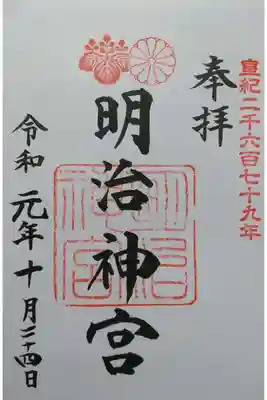 皇紀二千六百七十九年
奉拝
明治神宮
令和元年十月二十四日
明治神宮